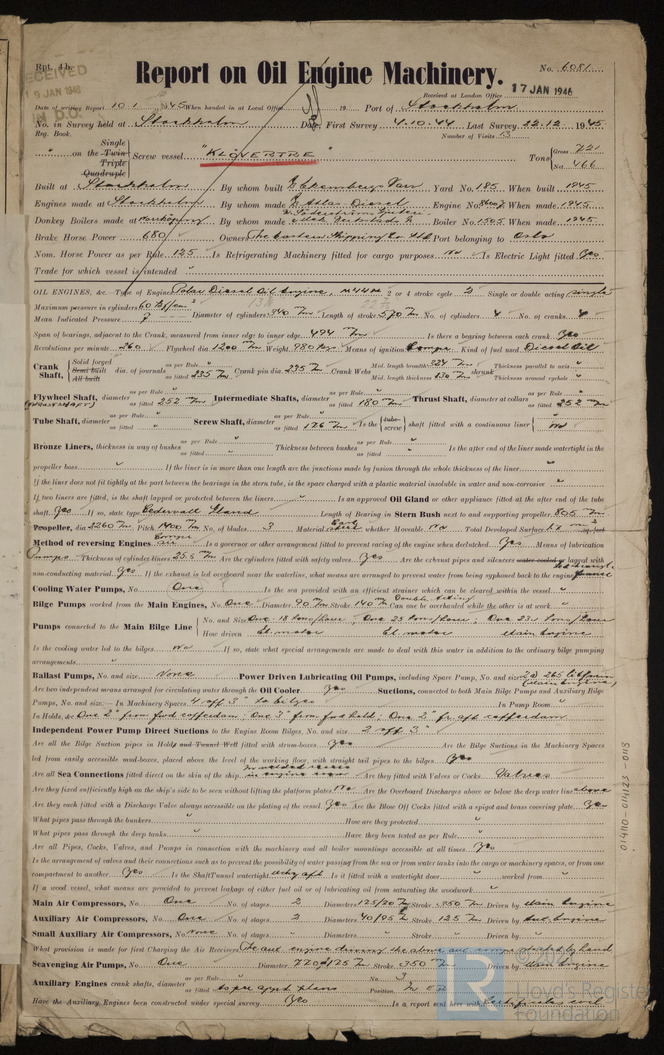 Rpt. 4b. No. 6081
RECEIVED
9 JAN 1946
IN D.O.
Report on Oil Engine Machinery.
Received at London Office 17 JAN 1946
Date of writing Report 10.1. 1945 When handed in at Local Office 19 Port of Stockholm
No. in Survey held at Stockholm Date, First Survey 4.10.44 Last Survey 22.12. 1945
Reg. Book. Number of Visits 53
Single
on the Twin
Triple
Quadruple
Screw vessel "KLÖVERTRE" Tons Gross 721
Net 466
Built at Stockholm By whom built Ekensbergs Varv Yard No. 185 When built 1945
Engines made at Stockholm By whom made Atlas Diesel Engine No. When made 1945
Donkey Boilers made at By whom made Boiler No. 1505 When made 1945
Brake Horse Power 680 Owners Port belonging to Oslo
Nom. Horse Power as per Rule 125 Is Refrigerating Machinery fitted for cargo purposes No Is Electric Light fitted Yes
Trade for which vessel is intended "
OIL ENGINES, &c.—Type of Engines Polar Diesel Oil Engine, M44M 2 or 4 stroke cycle 2 Single or double acting single
Maximum pressure in cylinders 60 Diameter of cylinders 340 m/m Length of stroke 570 m/m No. of cylinders 4 No. of cranks 4
Mean Indicated Pressure
Span of bearings, adjacent to the Crank, measured from inner edge to inner edge 494 m/m Is there a bearing between each crank Yes
Revolutions per minute 260 Flywheel dia. 1200 m/m Weight 980 kgs Means of ignition Compr. Kind of fuel used Diesel Oil
Crank Shaft, Solid forged Semi built All built dia. of journals as per Rule as fitted 235 m/m Crank pin dia. 235 m/m Crank Webs Mid. length breadth 324 m/m Mid. length thickness 130 m/m shrunk Thickness parallel to axis " Thickness around eyehole "
Flywheel Shaft, diameter as per Rule as fitted 252 m/m Intermediate Shafts, diameter as per Rule as fitted 180 m/m Thrust Shaft, diameter at collars as per Rule as fitted 252 m/m
Tube Shaft, diameter as per Rule as fitted " Screw Shaft, diameter as per Rule as fitted 176 m/m Is the tube screw shaft fitted with a continuous liner No
Bronze Liners, thickness in way of bushes as per Rule as fitted " Thickness between bushes as per Rule as fitted " Is the after end of the liner made watertight in the
propeller boss " If the liner is in more than one length are the junctions made by fusion through the whole thickness of the liner "
If the liner does not fit tightly at the part between the bearings in the stern tube, is the space charged with a plastic material insoluble in water and non-corrosive "
If two liners are fitted, is the shaft lapped or protected between the liners " Is an approved Oil Gland or other appliance fitted at the after end of the tube
shaft. Yes If so, state type Cedervall Gland Length of Bearing in Stern Bush next to and supporting propeller 805 m/m
Propeller, dia. 2260 m/m Pitch 1400 m/m No. of blades 3 Material whether Moveable No Total Developed Surface
Method of reversing Engines Compr. air Is a governor or other arrangement fitted to prevent racing of the engine when declutched Yes Means of lubrication
Pumps Thickness of cylinder liners 25.5 m/m Are the cylinders fitted with safety valves Yes Are the exhaust pipes and silencers water cooled or lagged with
non-conducting material Yes If the exhaust is led overboard near the waterline, what means are arranged to prevent water from being syphoned back to the engine
Cooling Water Pumps, No. One Is the sea provided with an efficient strainer which can be cleared within the vessel "
Bilge Pumps worked from the Main Engines, No. One Diameter 90 m/m Stroke 140 m/m Double Acting Can one be overhauled while the other is at work "
Pumps connected to the Main Bilge Line No. and Size One 18 tons/hour, One 23 tons/hour, One 23 tons/hour
How driven El. motor El. motor Main Engine
Is the cooling water led to the bilges No If so, state what special arrangements are made to deal with this water in addition to the ordinary bilge pumping
arrangements "
Ballast Pumps, No. and size None Power Driven Lubricating Oil Pumps, including Spare Pump, No. and size 2 à 265 (Main Engine)
Are two independent means arranged for circulating water through the Oil Cooler Yes Suctions, connected to both Main Bilge Pumps and Auxiliary Bilge
Pumps, No. and size:—In Machinery Spaces 4 off 3" to bilges In Pump Room "
In Holds, &c. One 2" from fwd cofferdam, One 3" from fwd hold, One 2" fr. aft cofferdam
Independent Power Pump Direct Suctions to the Engine Room Bilges, No. and size 2 off 3"
Are all the Bilge Suction pipes in Holds and Tunnel Well fitted with strum-boxes Yes Are the Bilge Suctions in the Machinery Spaces
led from easily accessible mud-boxes, placed above the level of the working floor, with straight tail pipes to the bilges Yes
Are all Sea Connections fitted direct on the skin of the ship in engine room Are they fitted with Valves or Cocks Valves
Are they fixed sufficiently high on the ship's side to be seen without lifting the platform plates No Are the Overboard Discharges above or below the deep water line above
Are they each fitted with a Discharge Valve always accessible on the plating of the vessel Yes Are the Blow Off Cocks fitted with a spigot and brass covering plate Yes
What pipes pass through the bunkers " How are they protected "
What pipes pass through the deep tanks " Have they been tested as per Rule "
Are all Pipes, Cocks, Valves, and Pumps in connection with the machinery and all boiler mountings accessible at all times Yes
Is the arrangement of valves and their connections such as to prevent the possibility of water passing from the sea or from water tanks into the cargo or machinery spaces, or from one
compartment to another Yes Is the Shaft Tunnel watertight Is it fitted with a watertight door " worked from "
If a wood vessel, what means are provided to prevent leakage of either fuel oil or of lubricating oil from saturating the woodwork "
Main Air Compressors, No. One No. of stages 2 Diameters 125/20 m/m Stroke 350 m/m Driven by Main Engine
Auxiliary Air Compressors, No. One No. of stages 2 Diameters 40/95 m/m Stroke 125 m/m Driven by Aux. Engine
Small Auxiliary Air Compressors, No. None No. of stages " Diameters " Stroke " Driven by "
What provision is made for first Charging the Air Receivers The aux engine driving the above aux by hand
Scavenging Air Pumps, No. One Diameter 720/125 m/m Stroke 350 m/m Driven by Main Engine
Auxiliary Engines crank shafts, diameter as per Rule as fitted as per appd plans No. 3 Position In E.R.
Have the Auxiliary Engines been constructed under special survey Yes Is a report sent here with Certificates encl.
014110-014123-0118
LR
© 2021
Lloyd's Register
Foundation